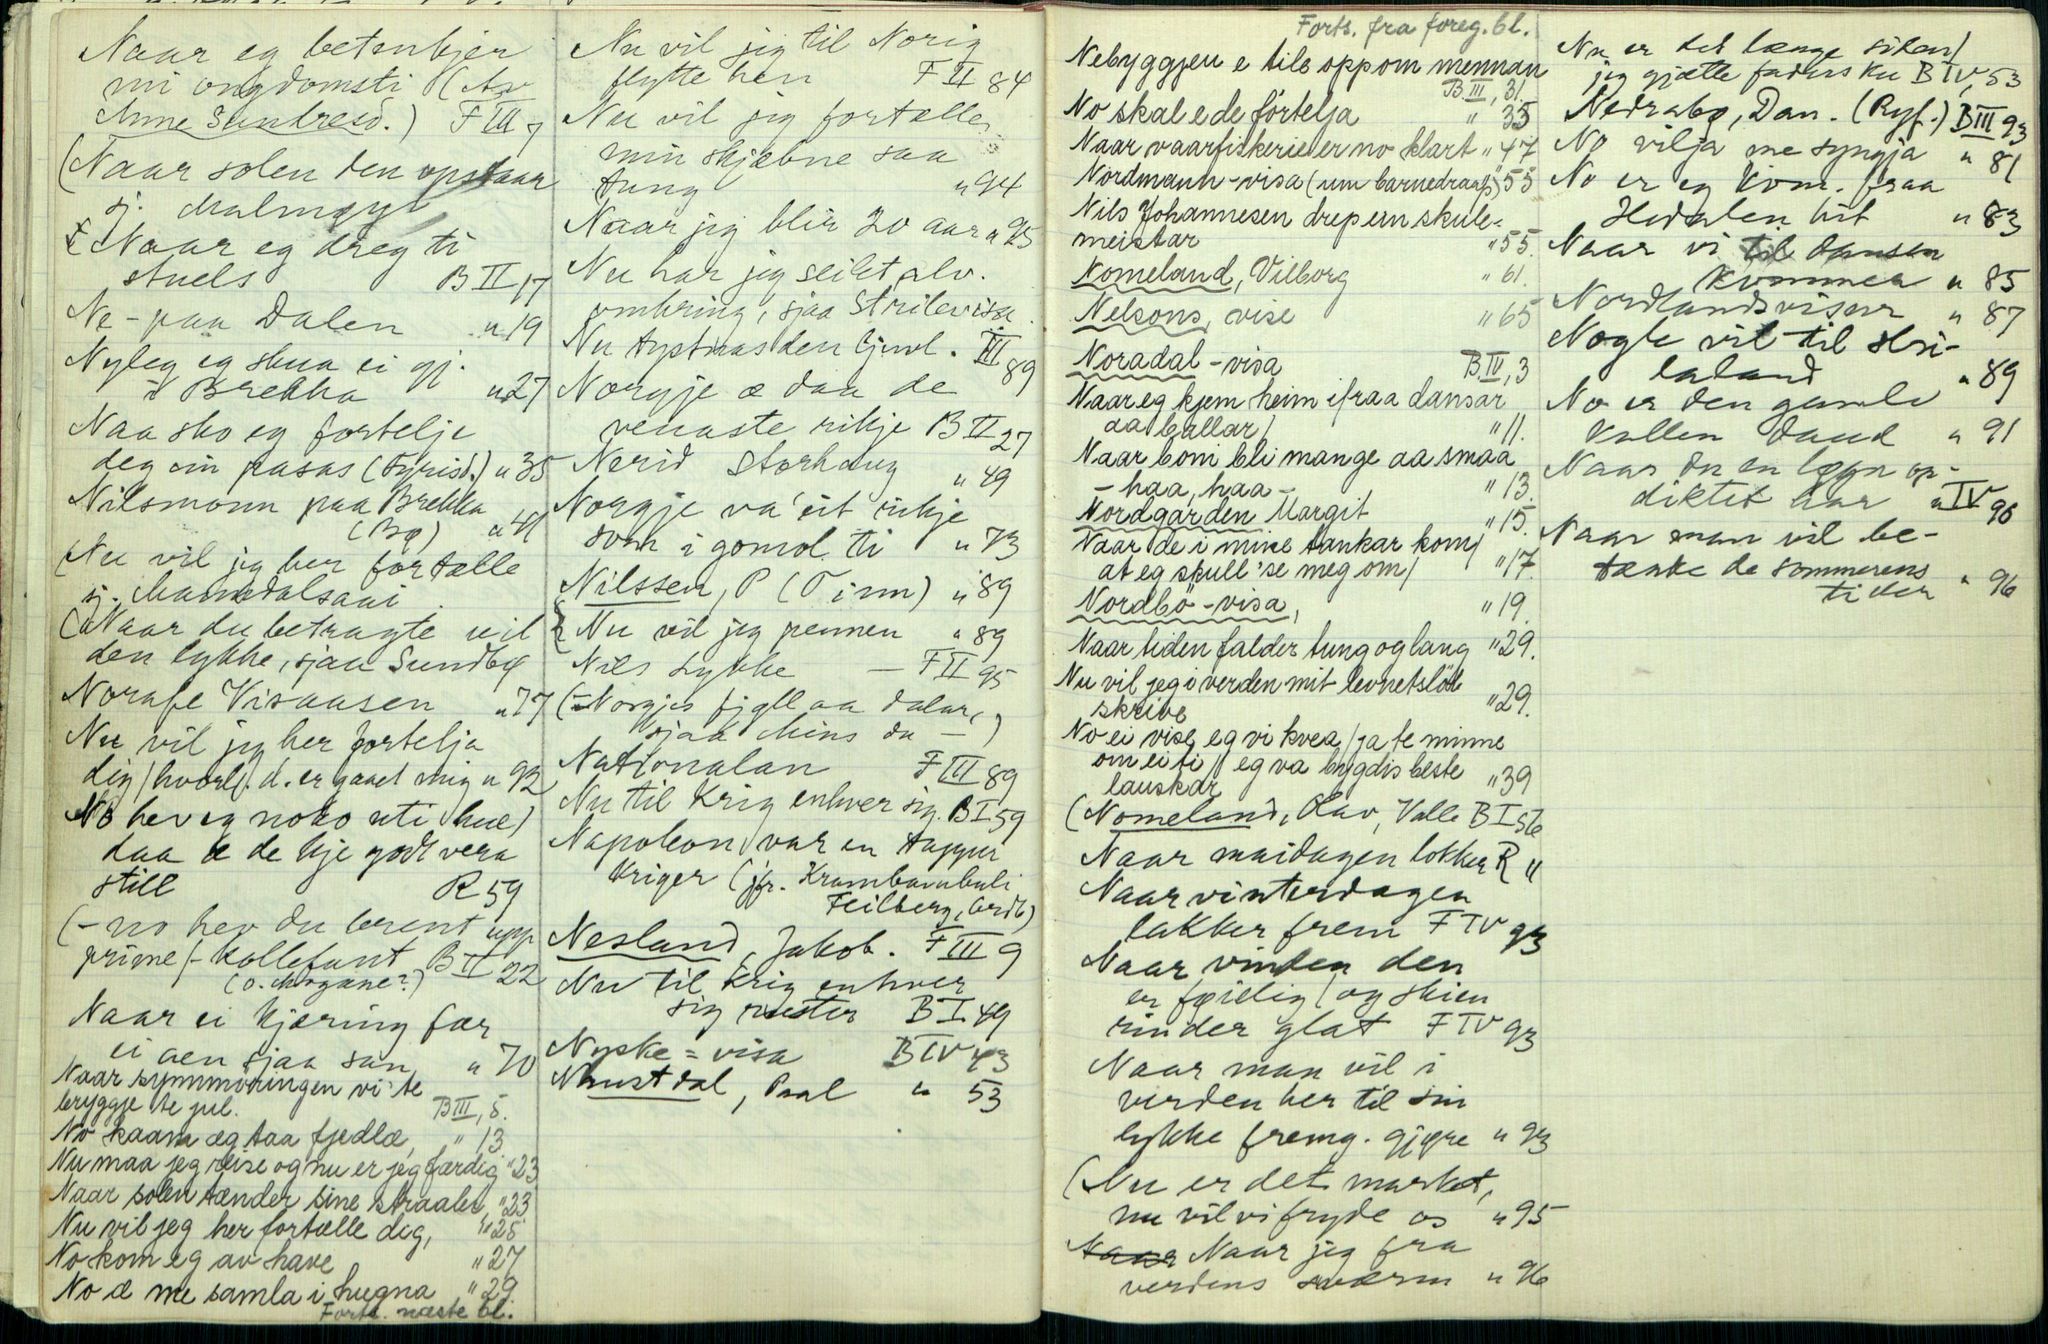 Naar eg betenkjer
mi ongdomsti (Av
Anne Sundresd.) F III 7
(Naar solen den opstaar
sj. Malmøyi
(Naar eg dreg ti
stuels B II 17
Ne - paa Dalen " 19
Nyleg eg skua ei gj.
i Brekka " 27
Naa sko eg fortelje
deg ein pasas (Fyrisd.) " 35
Nilsmonn paa Brekka
(Bø) " 41
(Nu vil jeg her fortælle
sj. Mandalsani
(Naar du betragte vil
den lykke, sjaa Sundbø
Norafe Visaasen " 77
Nu vil jeg her fortelja
dig / hvorl. d. er gaaet mig " 92
No hev eg noko uti hue /
daa æ de kje godt vera
still R 59
(- no hev du brent upp
prime / - Kallefant B II 22
(O. Morgane?)
Naar ei Kjæring fær
ei aen sjaa san " 70
Naar symmøringen vi te
bryggje te jul. B III, 5.
No kaam æg taa fjedlæ, " 13
Nu maa jeg reise og nu er jeg færdig " 23
Naar solen tænder sine straaler, " 23
Nu vil jeg her fortælle dig, " 25
No kom eg av have " 27
No æ me samla i hugna " 29
Forts. næste bl.
Nu vil jig til Norig
flytte hen F II 84
Nu vil jig fortælle
min skjæbne saa
tung " 94
Naar jig blir 20 aar " 95
Nu har jig seilet alv.
omkring, sjaa Strilevisa
Nu tystnas den ljuvl. III 89
Norgje æ daa de
venaste rikje B II 27
Nerid Storhaug " 49
Norgje va' eit rikje
som i gomol ti " 73
Nilssen, P (Tinn) " 89
(Nu vil jeg pennen " 89
Nils Lykke — F II 95
(- Norges fjell aa dalar,
sjaa Mins du —)
Nationalan F III 89
Nu til Krig enhver sig. B I 59
Napoleon var en tapper
Kriger (jfr. Krambambuli
Feilberg, Ordb)
Nesland, Jakob. F III 9
Nu til Krig enhver
sig ruster B I 49
Nyske = visa B IV 43
Naustdal, Paal " 53
Forts. fra foreg. bl.
Nebyggjen e tile opp om mennan
B III, 31.
No skal e de førtelja " 35
Naar vaarfiskerie er no klart " 47
Nordmann-visa (um barnedraap) " 55
Nils Johannesen drep ein skule-
meistar " 55.
Nomeland, Vilborg " 61.
Nelsons, vise " 65
Noradal - visa B, IV, 3
Naar eg kjem heim ifraa dansar
aa ballar / " 11.
Naar boni bli mange aa smaa
- haa, haa - " 13.
Nordgarden Margit " 15.
Naar de i mine tankar kom /
at eg skull 'se meg om / " 17.
Nordbö - visa, " 19.
Naar tiden falder tung og lang " 29.
Nu vil jeg i verden mit levnetsløb
skrive " 29.
No ei vise eg vi kvea / ja te minne
om ei ti / eg va bygdis beste
lauskar " 39
(Nomeland, Olav, Valle B I 56
Naar maidagen lokker R 11
Naar vinterdagen
lakker frem F IV 93
Naar vinden den
er føielig / og skien
rinder glat F IV 93
Naar man vil i
verden her til sin
lykke fremg. gjøre " 93
(Nu er det market,
nu vil vi fryde os " 95
Naar Naar jig fra
verdens sværm " 96
Nu er det længe siden /
jeg gjætte faders ku B IV, 53
Nedrabø, Dan. (Ryf.) B III 93
No vilja me syngja " 81
No er eg kom. fraa
Hedalen hit " 83
Naar vi til dansen
kommer " 85
Nordlandsvisur " 87
Nogle vil til Stri-
laland " 89
No er den gamle
Kallen daud " 91
Naar du en løgn op-
diktet har " IV 96
Naar man vil be-
tænke de sommerens
tider " 96